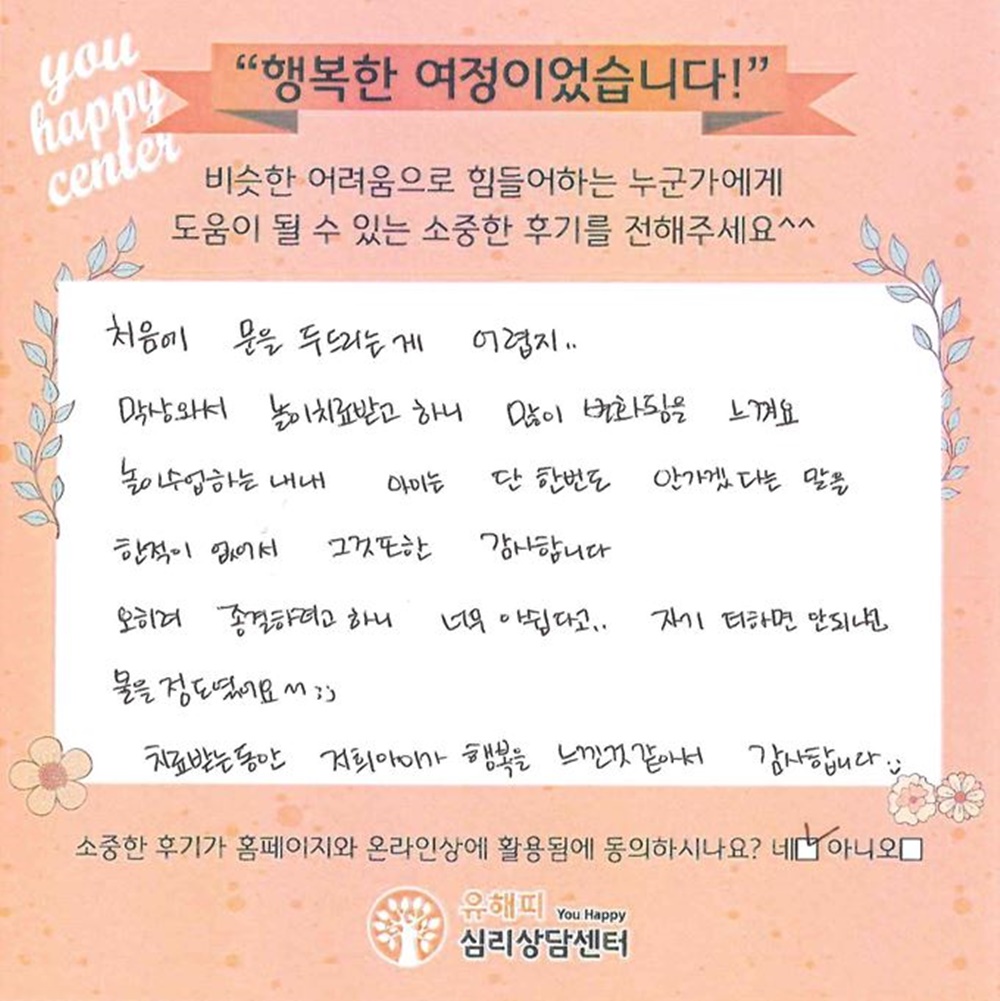 you
happy
center
“행복한 여정이었습니다!”
비슷한 어려움으로 힘들어하는 누군가에게
도움이 될 수 있는 소중한 후기를 전해주세요^^
처음에 문을 두드리는게 어렵지..
막상와서 놀이치료받고 하니 많이 변화됨을 느껴요
놀이수업하는 내내 아이는 단 한번도 안가겠다는 말을
한적이 없어서 그것또한 감사합니다
오히려 종결하려고 하니 너무 아쉽다고.. 자기 더하면 안되냐고
물을 정도였어요 ^^ ;;)
치료받는동안 저희아이가 행복을 느낀것같아서 감사합니다 :)
소중한 후기가 홈페이지와 온라인상에 활용됨에 동의하시나요? 네☑ 아니오☐
유해피 You Happy
심리상담센터